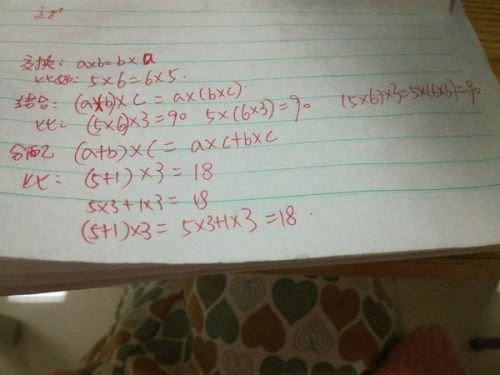 交换: a×b=b×a
比如: 5×6=6×5.
结合: (a×b)×c=a×(b×c).
比: (5×6)×3=90 5×(6×3)=90 (5×6)×3=5×(6×3)=90.
分配 (a+b)×c=a×c+b×c
比: (5+1)×3=18
5×3+1×3=18
(5+1)×3=5×3+1×3=18.